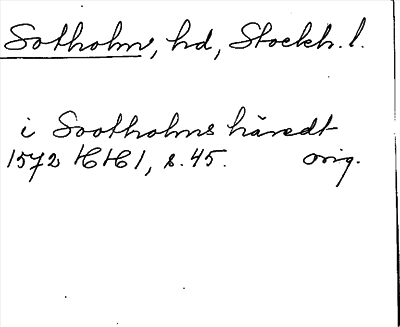 Sotholm, hd, Stockh. l.
i Sootholms häredt
1572 HH 1, s. 45. orig.